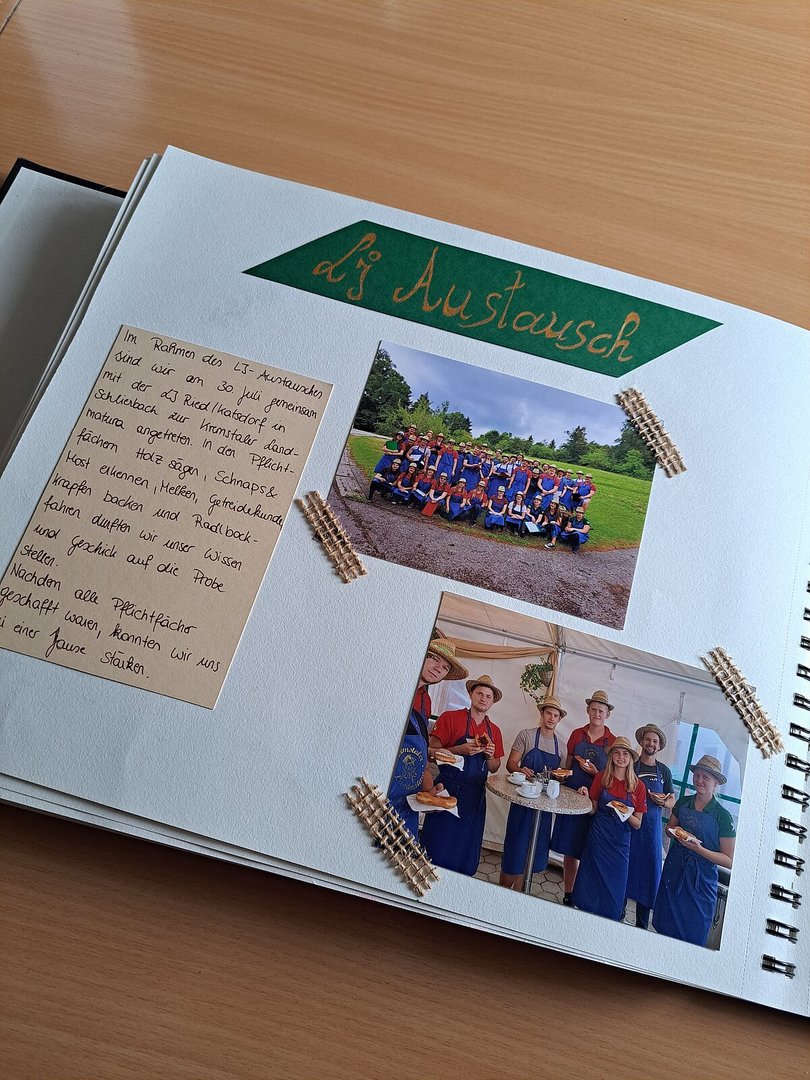 LJ Austausch
Im Rahmen des LJ-Austausches
sind wir am 30 Juli gemeinsam
mit der LJ Ried/Katsdorf in
Schlierbach zur Kremstaler Land-
matura angetreten. In den Pflicht-
fächern Holz sägen, Schnaps&
Most erkennen, Melken, Getreidekunde,
krapfen backen und Radlbock-
fahren durften wir unser Wissen
und Geschick auf die Probe
stellen.
Nachdem alle Pflichtfächer
geschafft waren, konnten wir uns
einer Jause stärken.